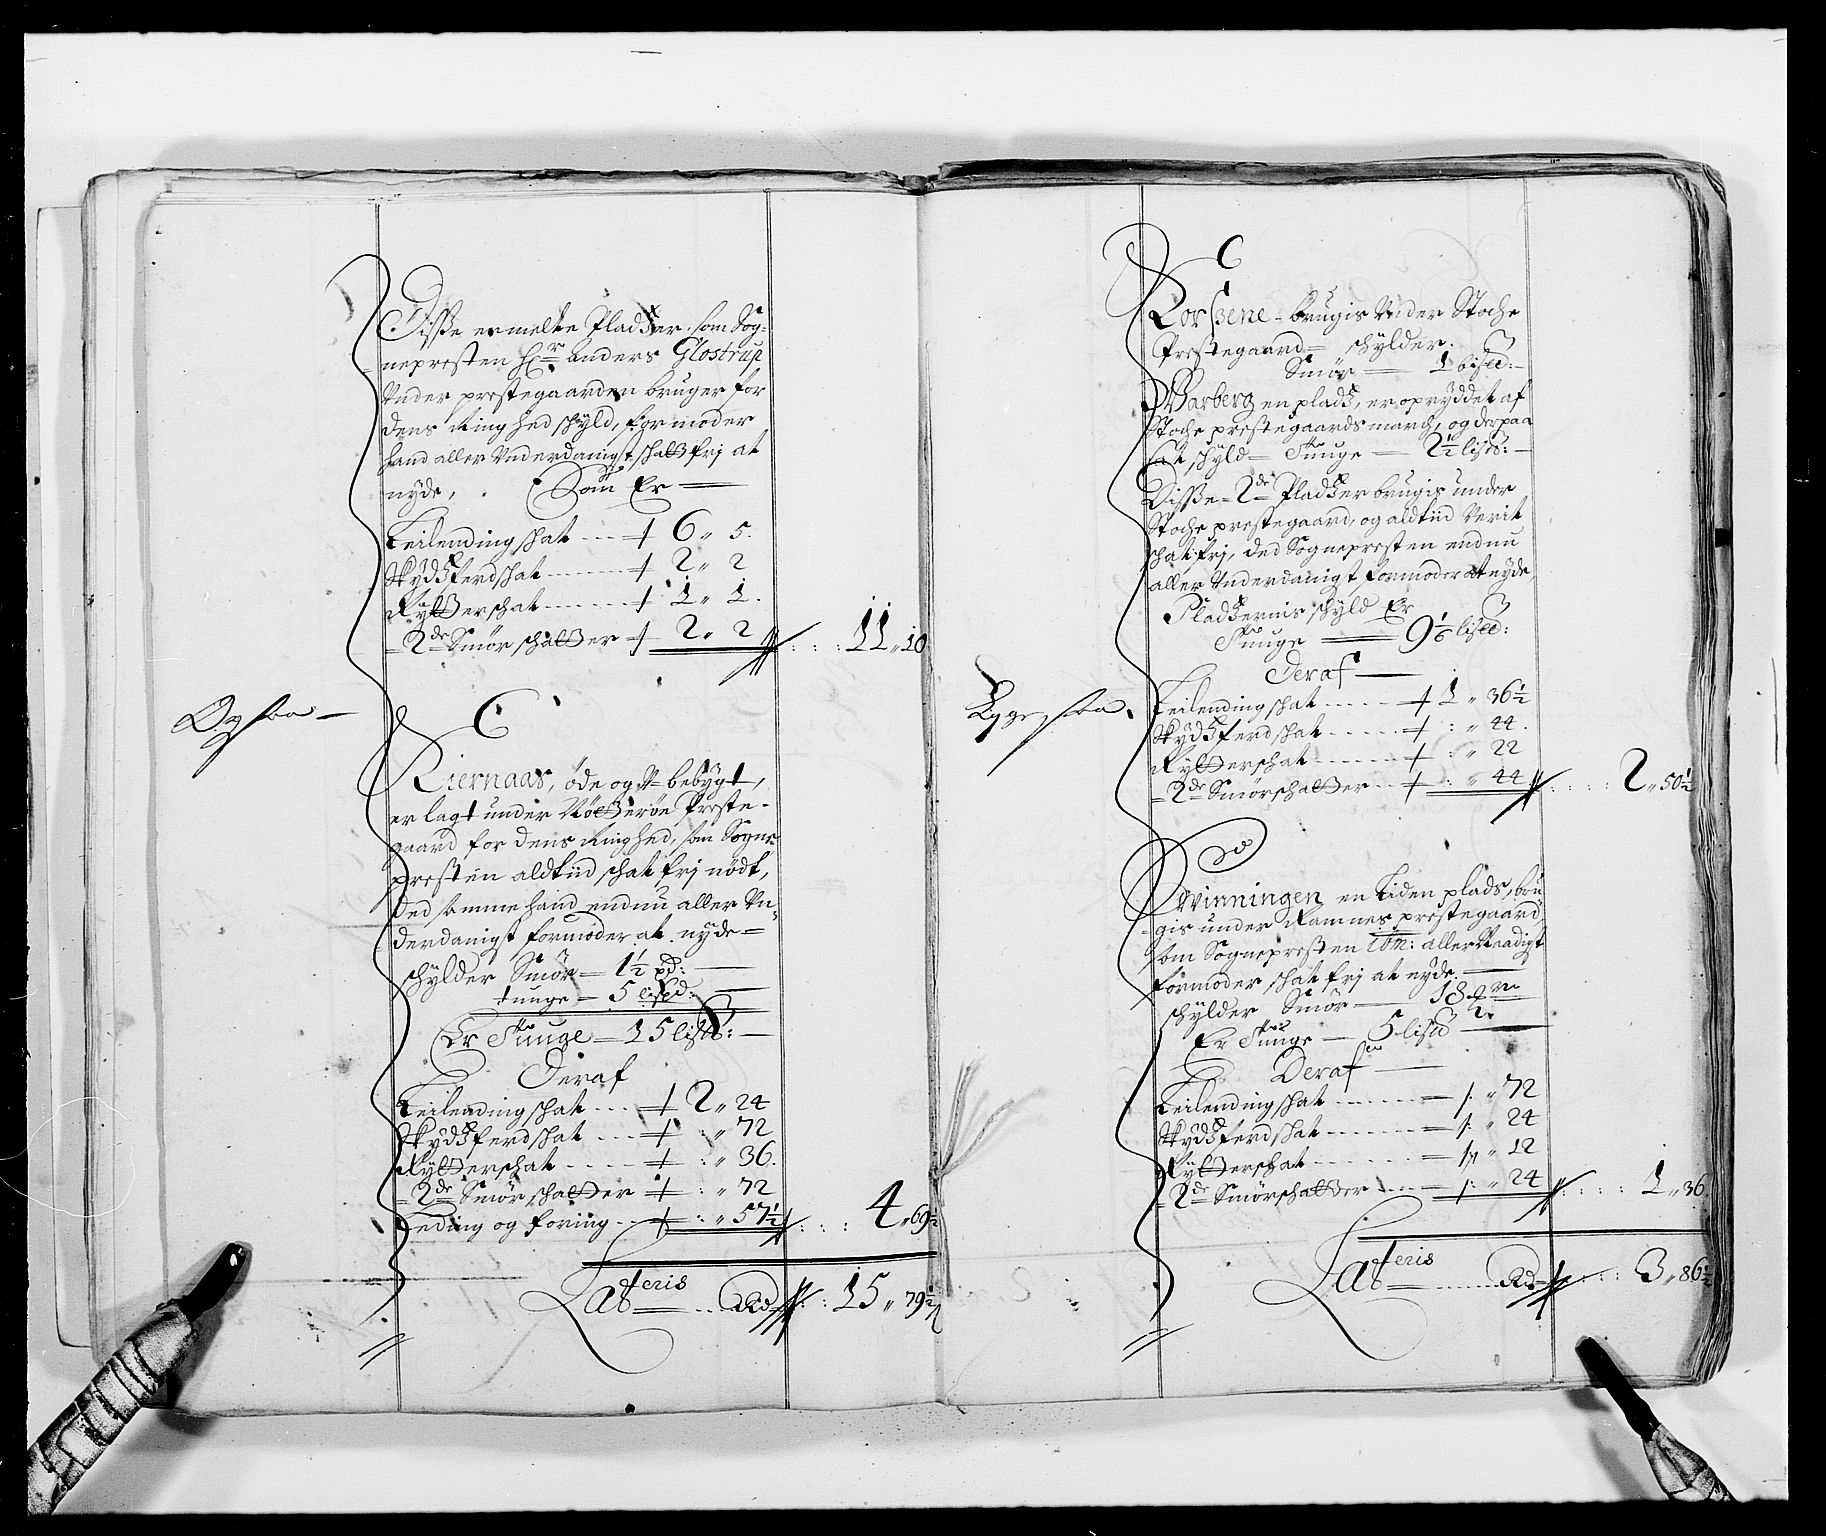 Disse ermelte Pladzer, som Sog-
nepresten Hr. Anders Glostrup
Under prestegaarden bruger for
dens Ringhed schyld, formoder
hand aller Underdanigst schatt frj at
nyde, Som Er
Leilendingschat 6 „ 5.
Skydtzferdschat 2 „ 2
Rytterschat 1 „ 1.
2de Smörschatter 2 „ 2 11 „ 10
Ogsaa
C
Kiernaas, öde og U-bebygt,
er lagt under Nötteröe Preste-
gaard for dens Ringhed, som Sogne-
presten altiid schat frj nödt,
Ded samme hand endnu aller Un-
derdanigst formoder at nyde
schylder Smör 1½ pd:
tunge 5 lispd:
Er Tunge 15 lispd:
Deraf
Leilendingschat 2 „ 24
Skydtzferdschat : „ 72
Rytterschat : „ 36.
2de Smörschatter : „ 72
Leding og foring : „ 57½ 4 „ 69½
Lateris Rd 15 „ 79½
C
Korssene brugis Under Stoche
Prestegaard schylder.
Smör 1 bispd:
Warberg en pladtz, er opryddet af
Stoche prestegaards march, og derpaa
sat schyld Tunge 2½ lispd:
Disse 2de Pladtzer brugis under
Stoche prestegaard, og altiid Verit
schat frj, ded Sognepresten endnu
aller Underdanigst formoder at nyde,
Pladtzernis schyld Er
Tunge 9⅙ lispd:
Deraf
Liggesaa
Leilendingschat 1 „ 36½
Skydtzferdschat : „ 44.
Rytterschat : „ 22
2de Smörschatter : „ 44 2 „ 50½
D
Winningen en Liden plads, bru
gis under Ramnes prestegaard
som Sognepresten aller Naadigst
formoder schat frj at nyde.
schylder Smör 18
Er Tunge 5 lispd
Deraf
Leilendingschat : „ 72
Skydtzferdschat : „ 24
Rytterschat „ 12
2de Smörschatter : „ 24 1 „ 36
Lateris Rd 3 „ 86½